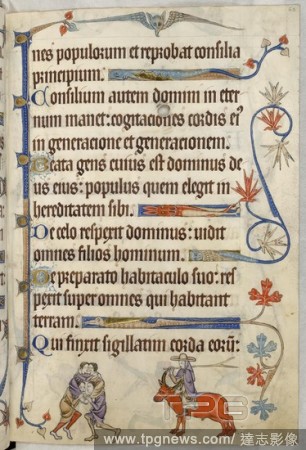 nes populorum et reprobat consilia
principium.
Consilium autem domini in eter
num manet: cogitaciones cordis ei'
in generacione et generacionem.
Beata gens cuius est dominus de
us eius: populus quem elegit in
hereditatem sibi.
De celo respexit dominus: uidit
omnes filios hominum.
De preparato habitaculo suo: res
pexit super omnes qui habitant
terram.
Qui finxit sigillatim corda eorum:
TPG
www.tpgnews.com/ 達志影像